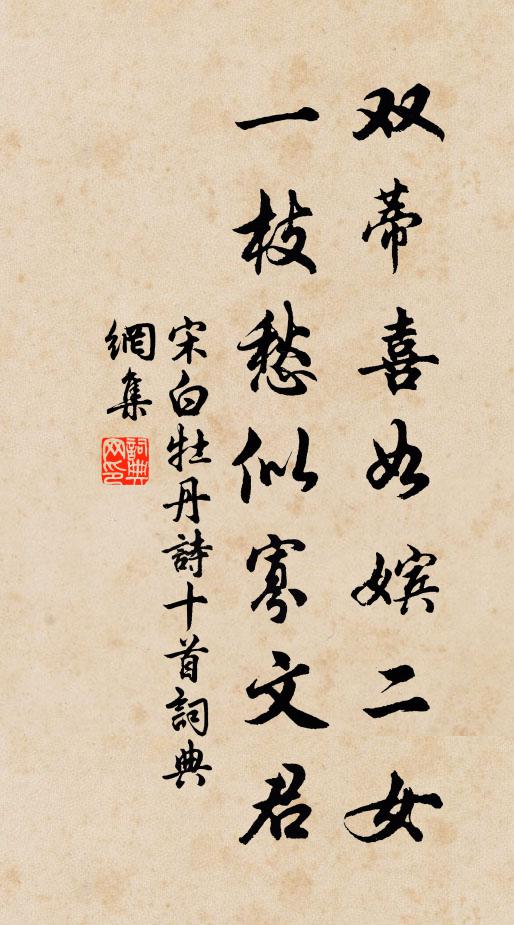 双蒂喜如嫔二女
一枝愁似寡文君
宋白牡丹詩十首詞典
網集
詞典网印